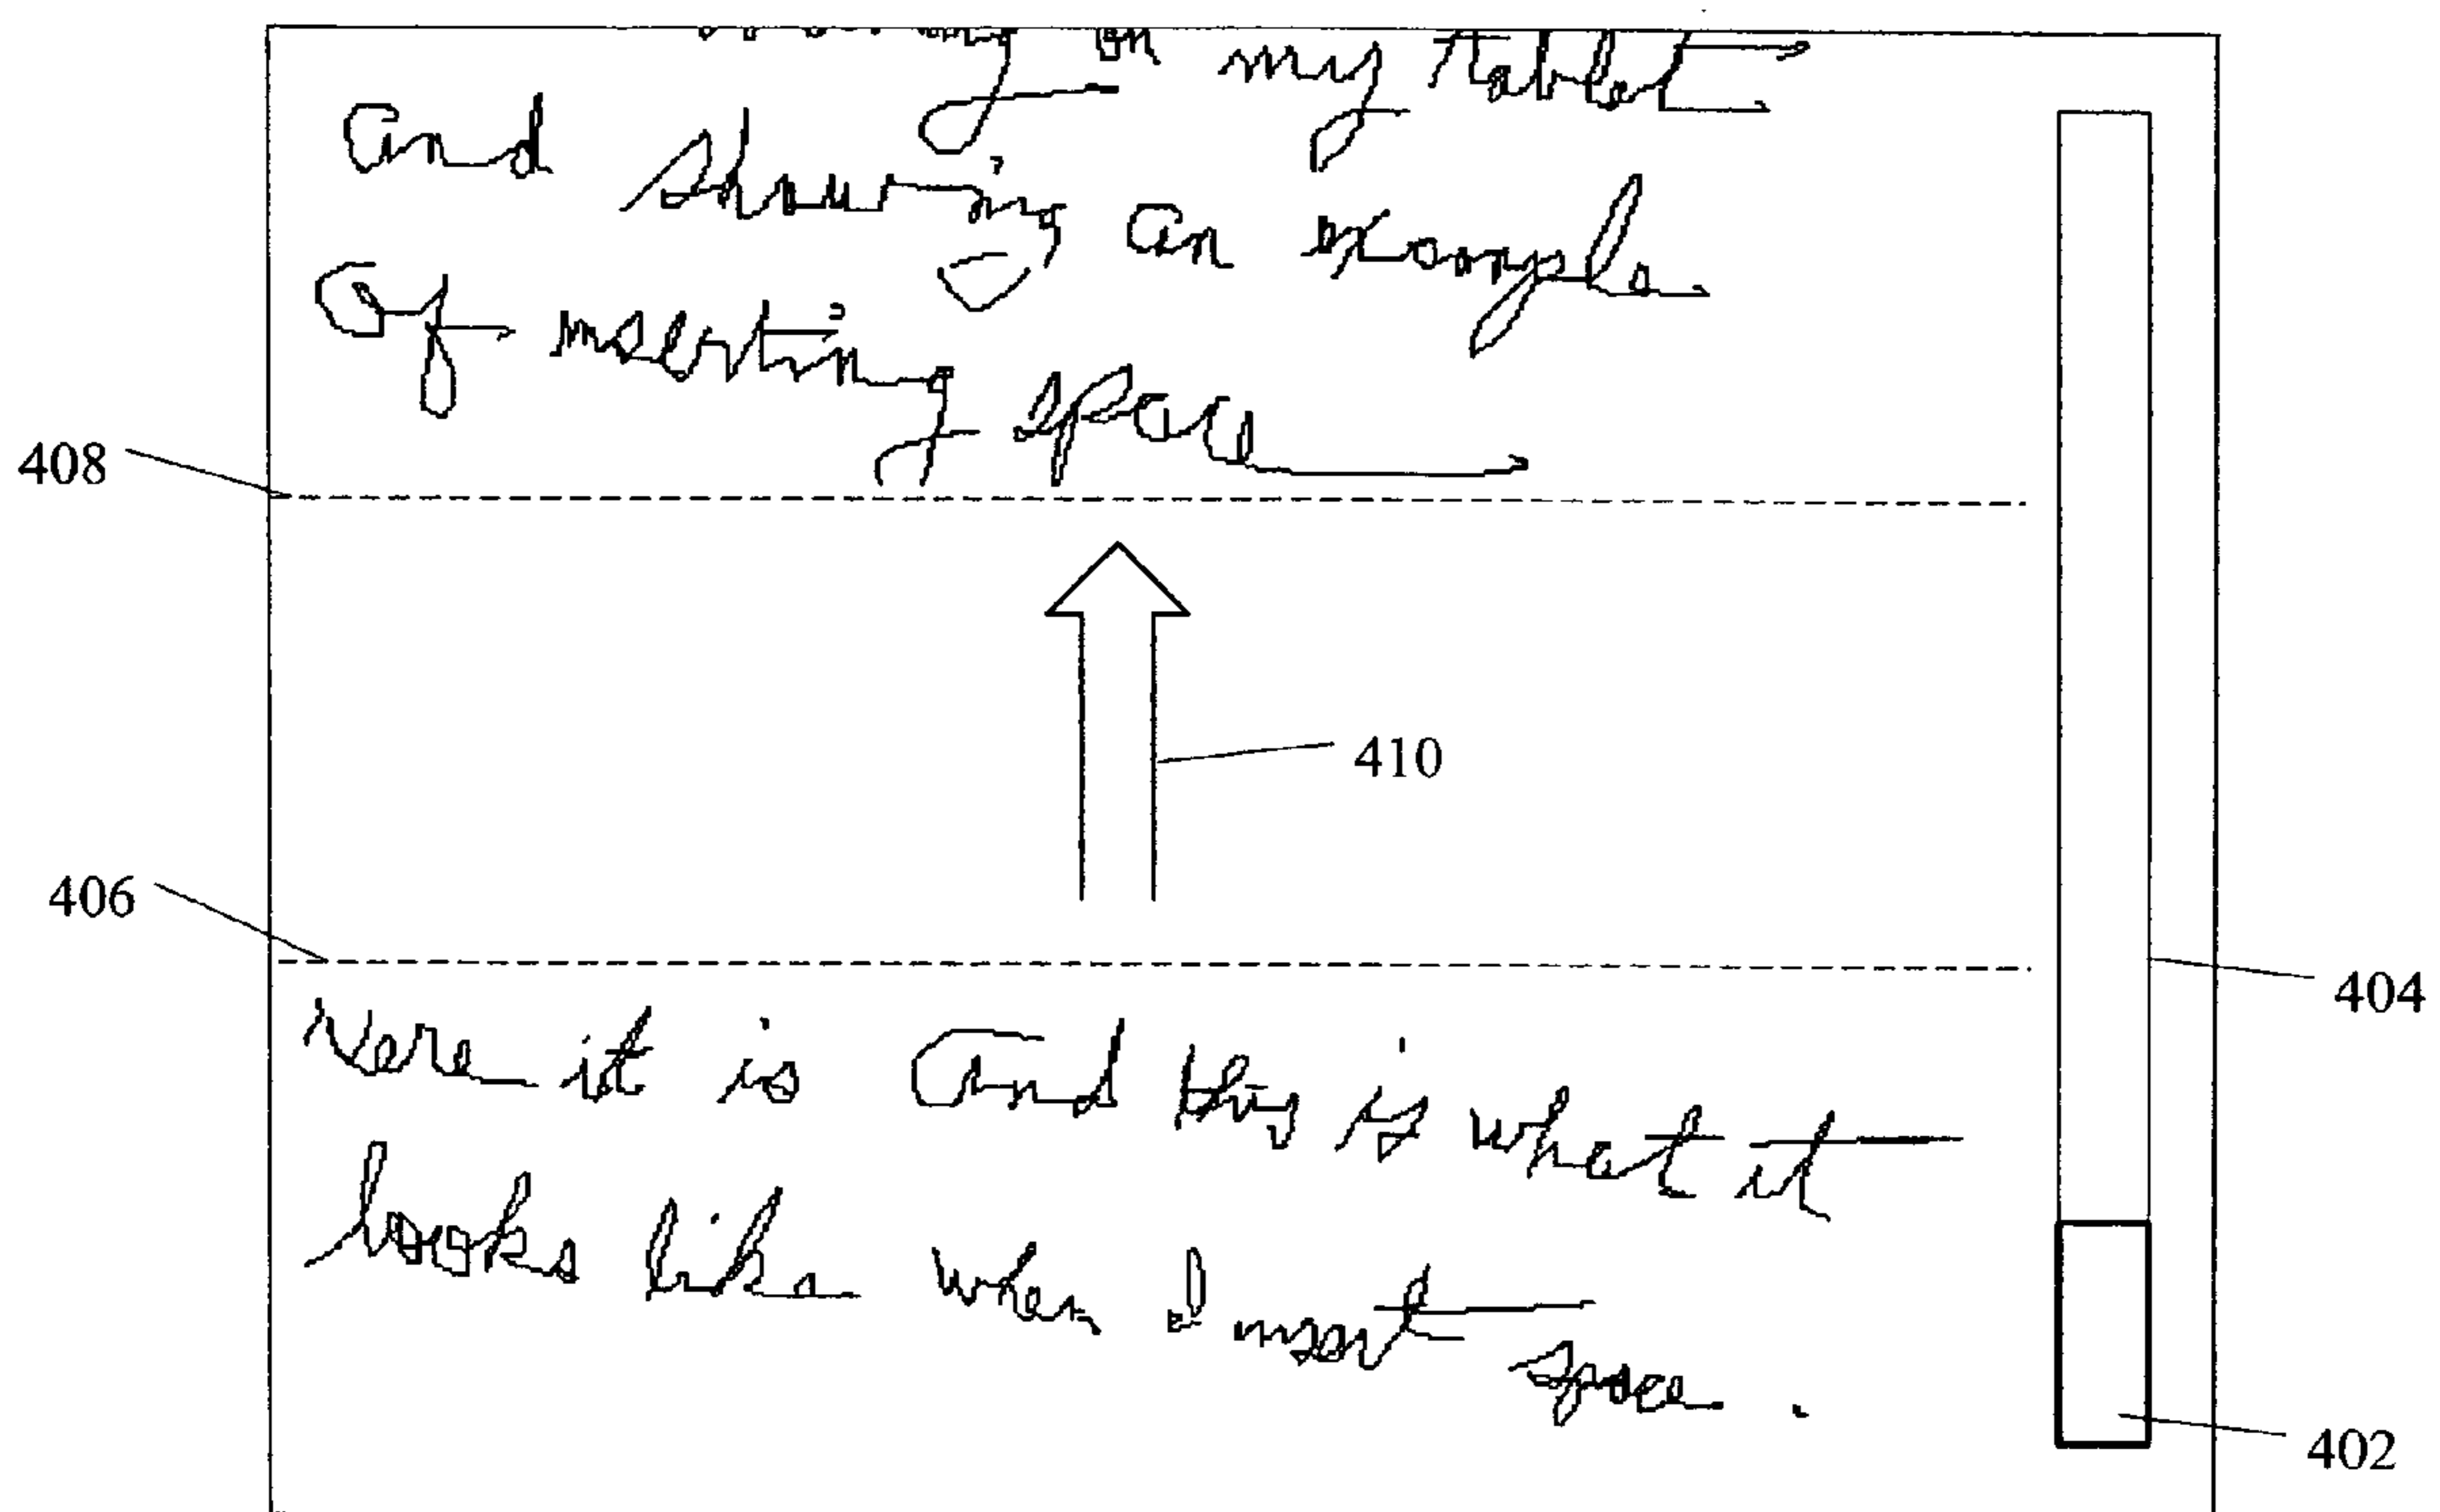 my tablet
and showing an example
of inserting space
408
410
406
Here it is and this is what it
404
looks like when I insert space.
402